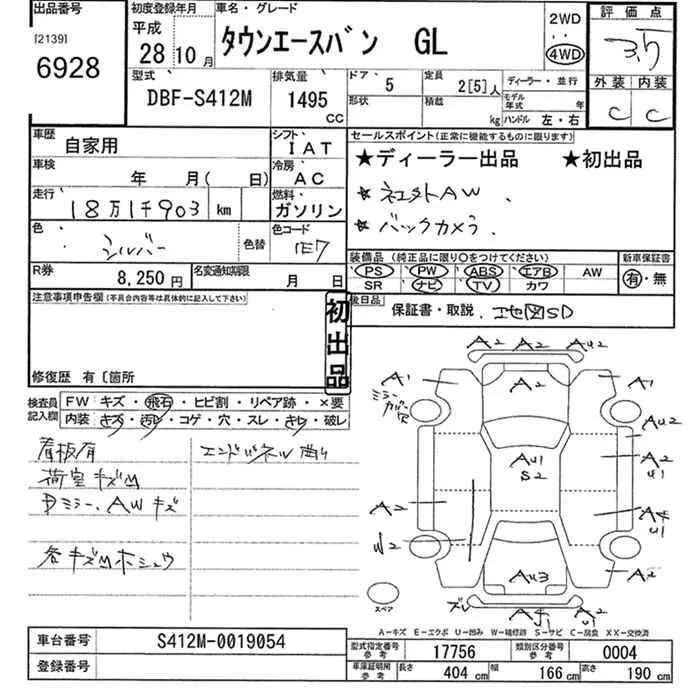 出品番号
[2139]
6928
初度登録年月
平成
28 10 月
車名・グレード
タウンエースバン GL
2WD
4WD
評価点
3.5
外装 内装
C C
型式
DBF-S412M
排気量
1495
CC
ドア
5
定員
2[5]人
ディーラー・並行
形状
積載
kg
モデル年式 年
ハンドル 左・右
車歴
自家用
シフト
IAT
セールスポイント(正常に機能するものに限ります)
★ディーラー出品 ★初出品
★ 社外AW、
★ バックカメラ
車検
年 月( 日)
冷房
AC
走行
18万1千903 km
燃料
ガソリン
色
シルバー
色替
色コード
1E7
装備品(純正品に限り○をつけてください)
PS PW ABS エアB AW
SR ナビ TV カワ
新車保証書
有・無
R券
8,250円
名変通知期限
月 日
後日品
保証書・取説、地図SD
注意事項申告欄(不具合内容等は具体的に記入して下さい)
初出品
修復歴 有〔箇所
検査員記入欄
FW キズ・飛石・ヒビ割・リペア跡・×要
内装・キズ・汚レ・コゲ・穴・スレ・きレ・破レ
看板有
荷室キズM
Dミラー、AWキズ
各キズMホシュウ
エンドパネル曲り
A2 A2 AU2
A1 A2 A1
ミラーカバー穴
AU2
AU1
S2
A2
U1
A2
A4
U1
W2
AU3
A2
スペア
ズレ
A4 AU2
U1
A-キズ E-エクボ U-凹み W-補修跡 S-サビ C-腐食 XX-交換済
車台番号
S412M-0019054
登録番号
型式指定番号
参考
17756
類別区分番号
参考
0004
車庫証明用
参考
長さ
404 cm
幅
166 cm
高さ
190 cm